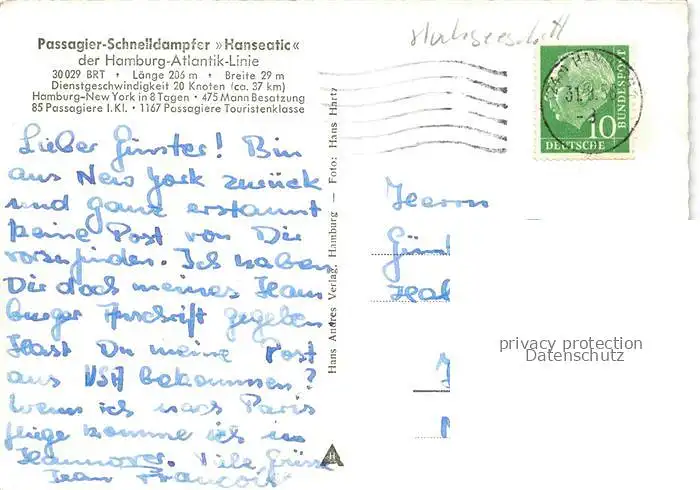 Passagier-Schnelldampfer »Hanseatic«
der Hamburg-Atlantik-Linie
30 029 BRT • Länge 206 m • Breite 29 m
Dienstgeschwindigkeit 20 Knoten (ca. 37 km)
Hamburg–New York in 8 Tagen • 475 Mann Besatzung
85 Passagiere I. Kl. • 1167 Passagiere Touristenklasse
Lieber Günter! Bin
aus New York zurück
und ganz erstaunt
keine Post von Dir
vorzufinden. Ich habe
Dir doch meines Ham
burger Anschrift gegeben
Hast Du meine Post
aus USA bekommen?
Wenn ich nach Paris
fliege komme ich in
Hannover. Viele Grüsse
Jean François
Hans Andres Verlag, Hamburg — Foto: Hans Hartz
HAMBURG
10
DEUTSCHE
BUNDESPOST
Herrn
privacy protection
Datenschutz